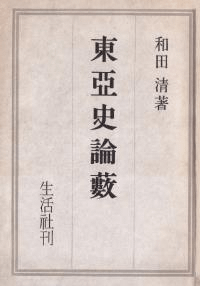 和田 清著
東亞史論藪
生活社刊